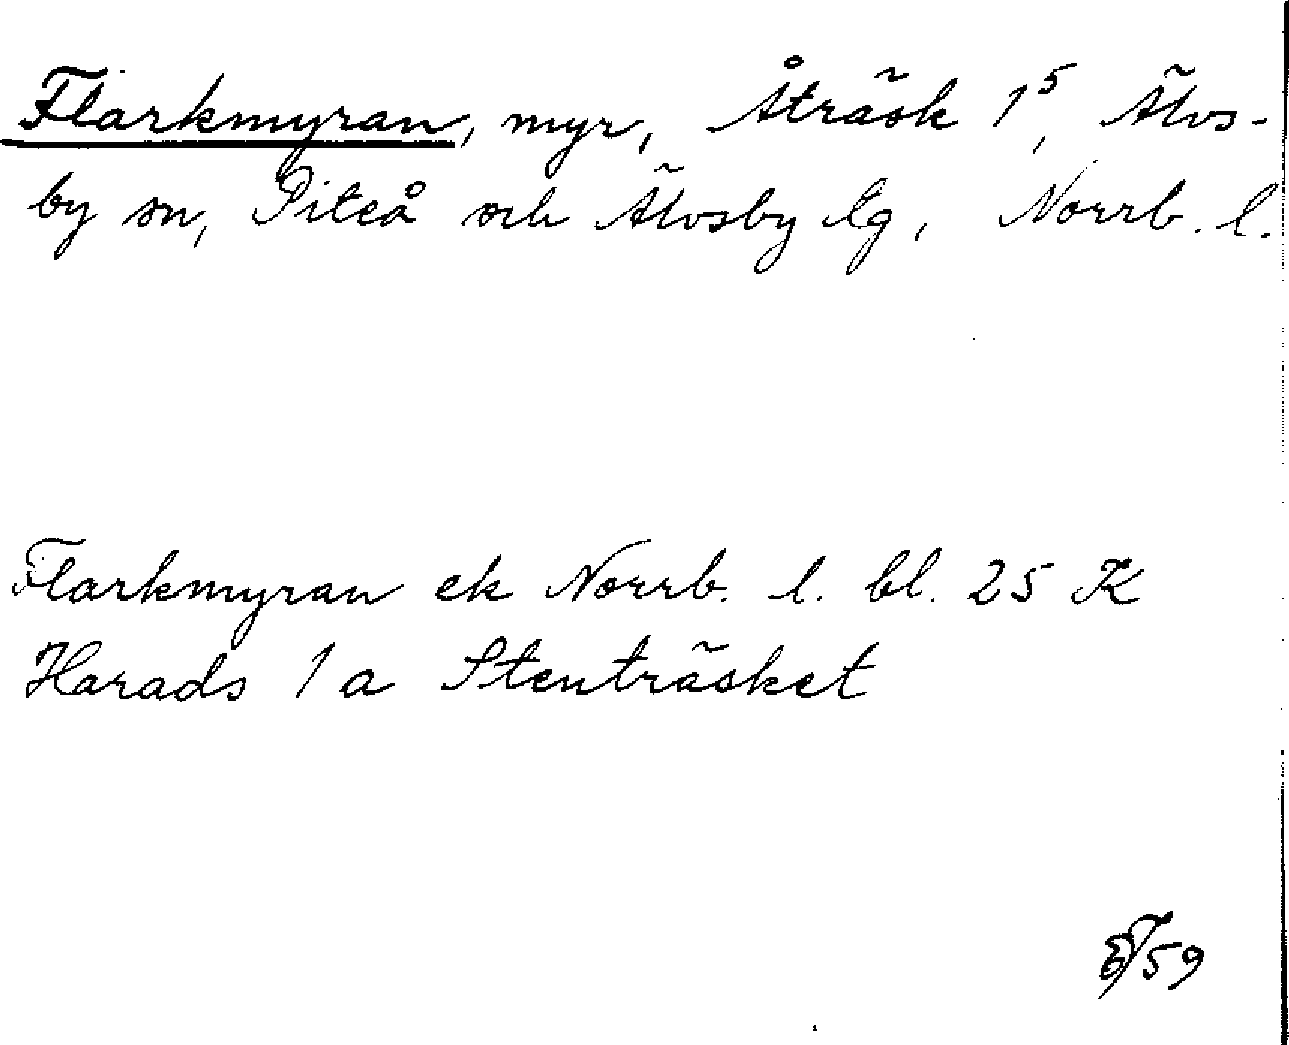 Flarkmyran, myr, Åträsk 1⁵, Älvs-
by sn, Piteå och Älvsby tg, Norrb. l.
Flarkmyran ek Norrb. l. bl. 25 K
Harads 1 a Stenträsket
59